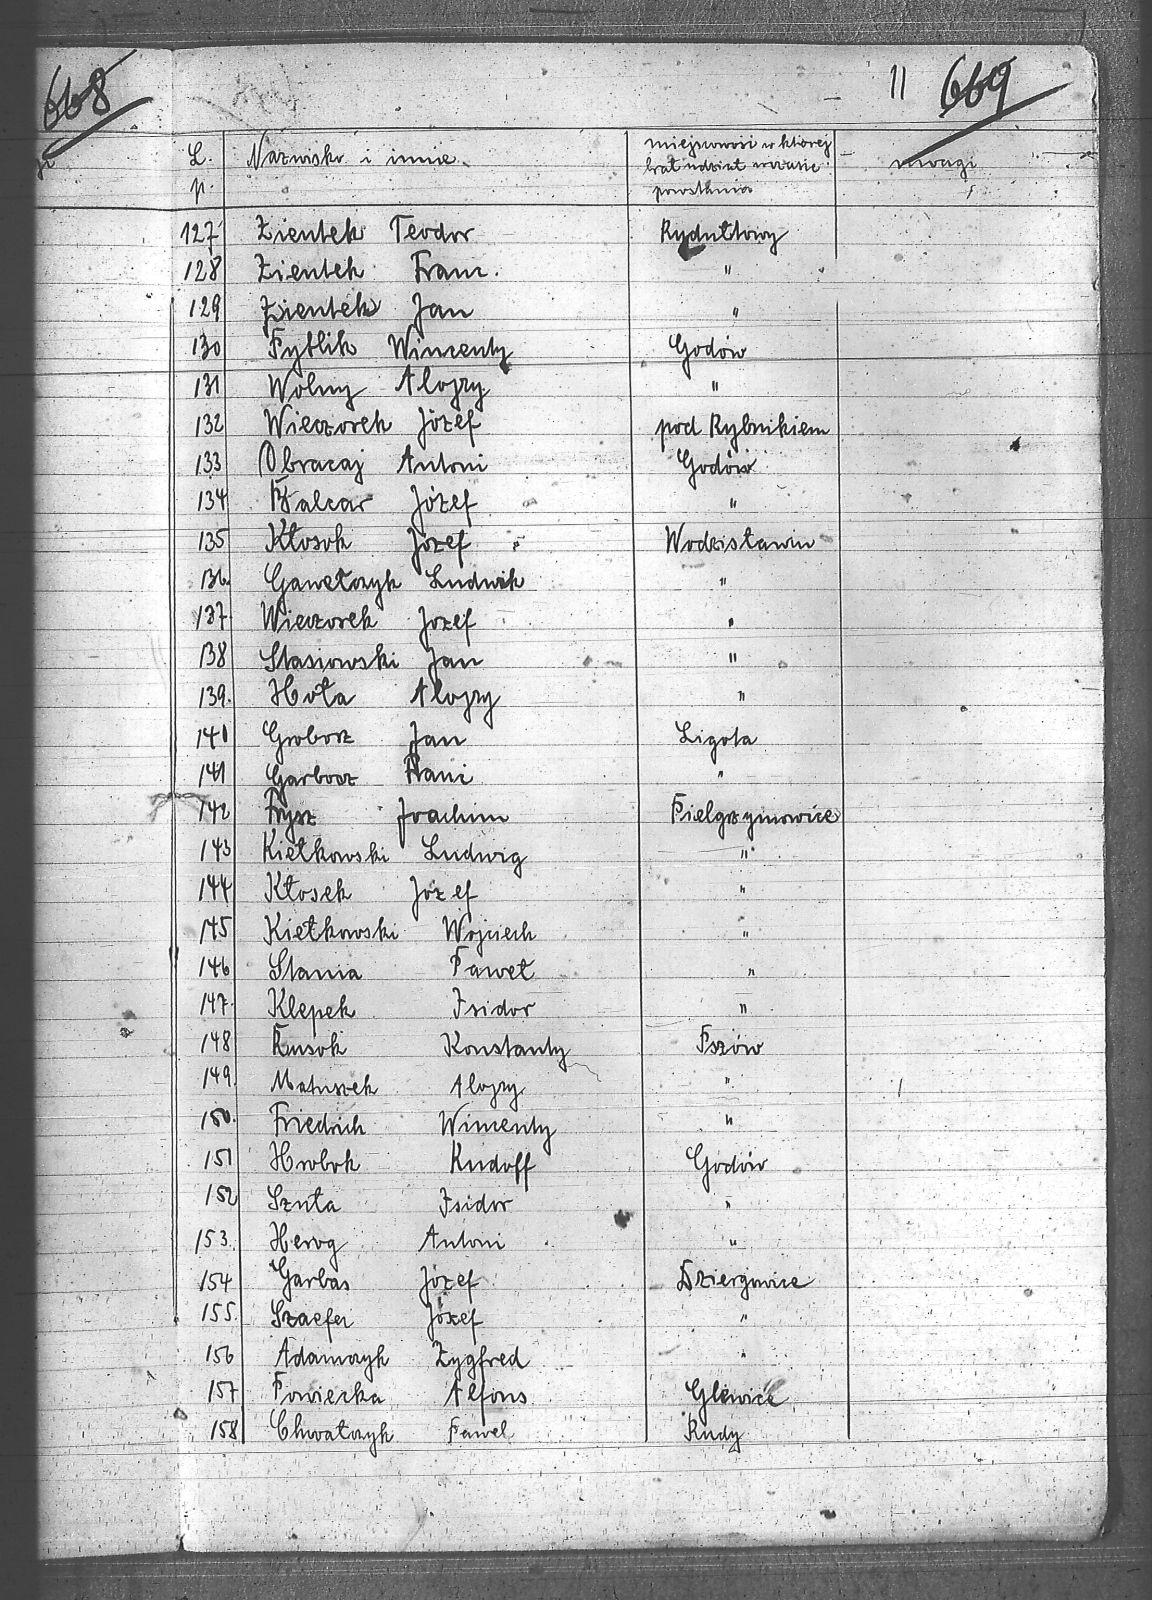 668
11 669
L. p. Nazwisko i imie. miejscowość w której brał udział w czasie powstania uwagi
127 Zientek Teodor Rydułtowy
128 Zientek Franc. "
129 Zientek Jan "
130 Pyblik Wincenty Godów
131 Wolny Alojzy "
132 Wieczorek Józef pod Rybnikiem
133 Obracaj Antoni Godów
134 Balcar Józef "
135 Kłosok Józef Wodzisławiu
136. Gawełczyk Ludwik "
137. Wieczorek Józef "
138 Stasiowski Jan "
139. Hota Alojzy "
140 Groborz Jan Ligota
141 Garborz "
142 Joachim Pielgrzymowice
143 Kiełkowski Ludwig "
144 Kłosek Józef "
145 Kiełkowski Wojciech "
146 Stania Paweł "
147. Klepek Isidor "
148 Konstanty Pszów
149. Matuszek Alojzy "
150. Friedrich Wincenty "
151 Hrobok Rudolf Godów
152 Szuta Isidor "
153. Herog Antoni "
154 Garbas Józef Dziergowice
155. Szaefer Józef "
156 Adamczyk Zygfred "
157 Powiecka Alfons Gliwice
158 Chwałczyk Pawel Rudy